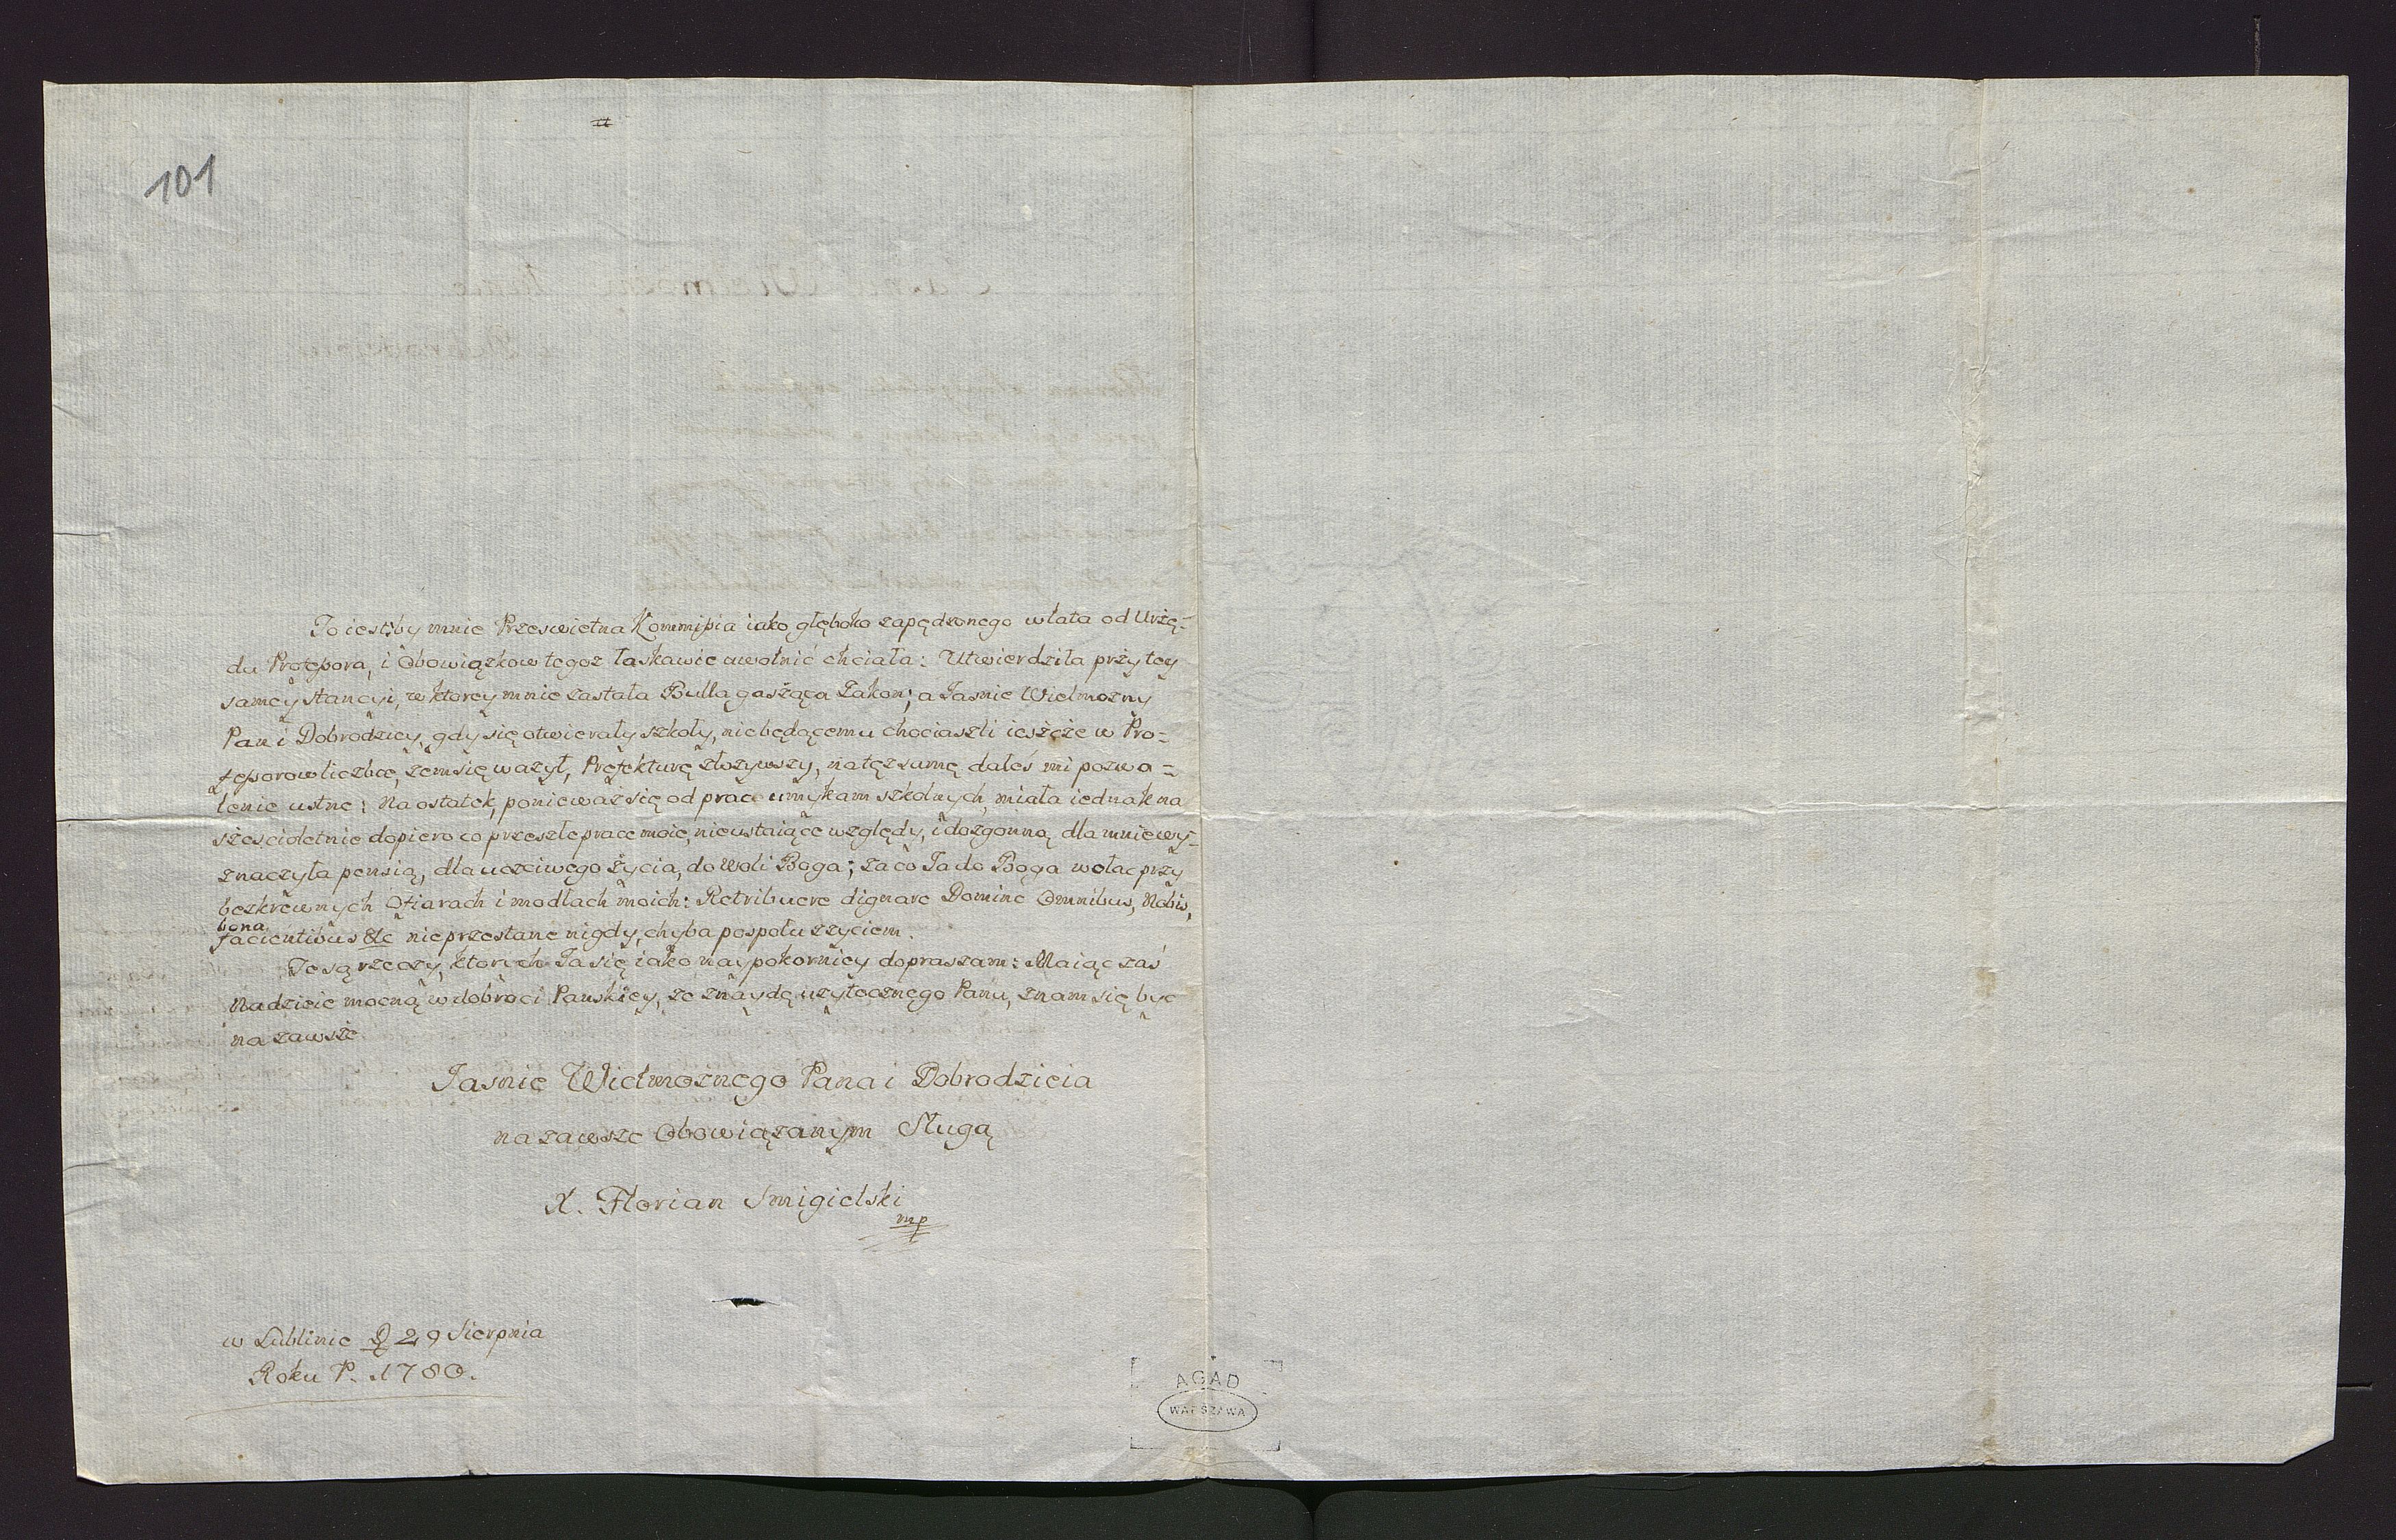 101
To iest: by mnie Przeswietna Kommissia iako głęboko zapędzonego w lata od Urzę-
du Professora, i Obowiązkow tegoz łaskawie uwolnić chciała: Utwierdziła przy tey
samey stancyi, w ktorey mnie zastała Bulla gasząca Zakon; a Jasnie Wielmozny
Pan i Dobrodziey, gdy się otwierały szkoły, nie będącemu chociaszli ieszcze w Pro-
fessorow liczbie, zem się wazył, Prefekturę złozywszy, na tęz samę dałeś mi pozwo-
lenie ustne: Na ostatek, ponieważ się od prac umykam szkolnych, miała iednak na
szescioletnie dopiero co przeszłe prace moie, nieustaiące względy, i dozgonną dla mnie wy-
znaczyła pensią, dla uczciwego życia, do Woli Boga; za co Ja do Boga wołac przy
bezkrewnych Ofiarach i modłach moich: Retribuere dignare Domine Omnibus, Nobis,
bona
facientibus &c nie przestane nigdy, chyba pospołu z zyciem.
Te są rzeczy, ktorych Ja się iako naypokorniey dopraszam: Maiąc zaś
Nadzieie mocną w dobroci Panskiey, ze znaydę uzytecznego Panu, znam się byc
na zawsze
Jasnie Wielmoznego Pana i Dobrodzieia
na zawsze Obowiązanym Sługą
X. Florian Smigielski
mp
w Lublinie D 29 Sierpnia
Roku P. 1780.
AGAD
WARSZAWA